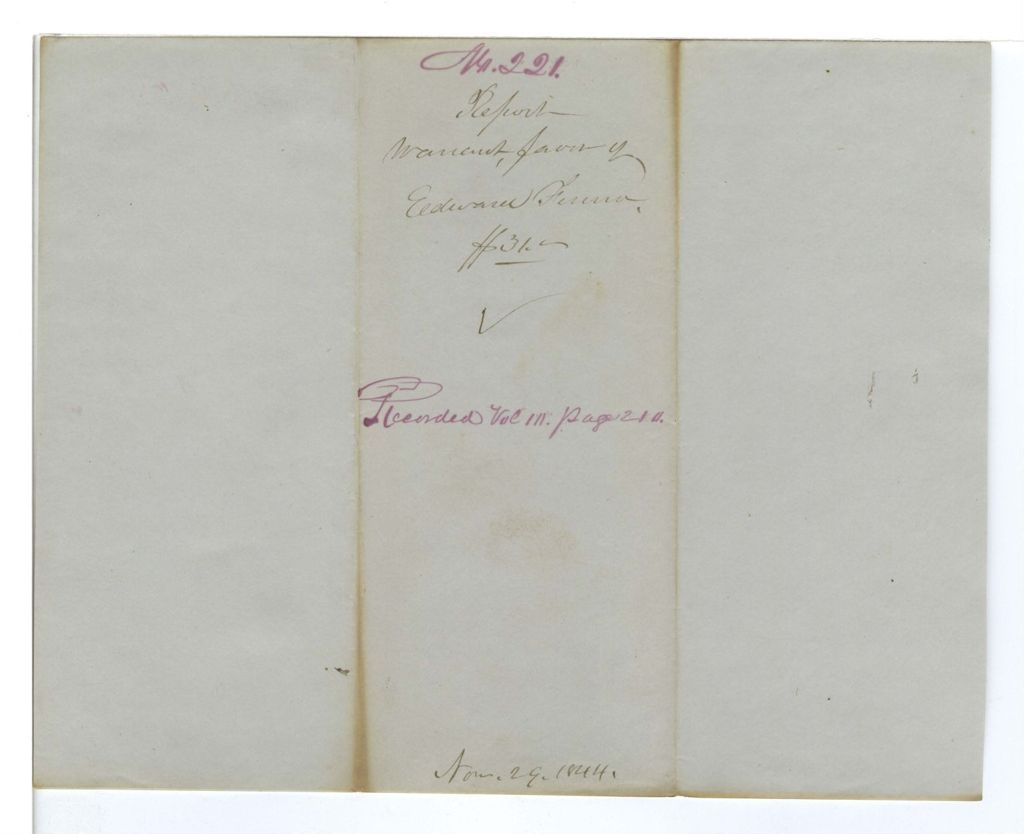 No. 221.
Report
Warrant, favor of
Edward Fenno.
$31.—
Recorded Vol III. page 210.
Nov. 29. 1844.